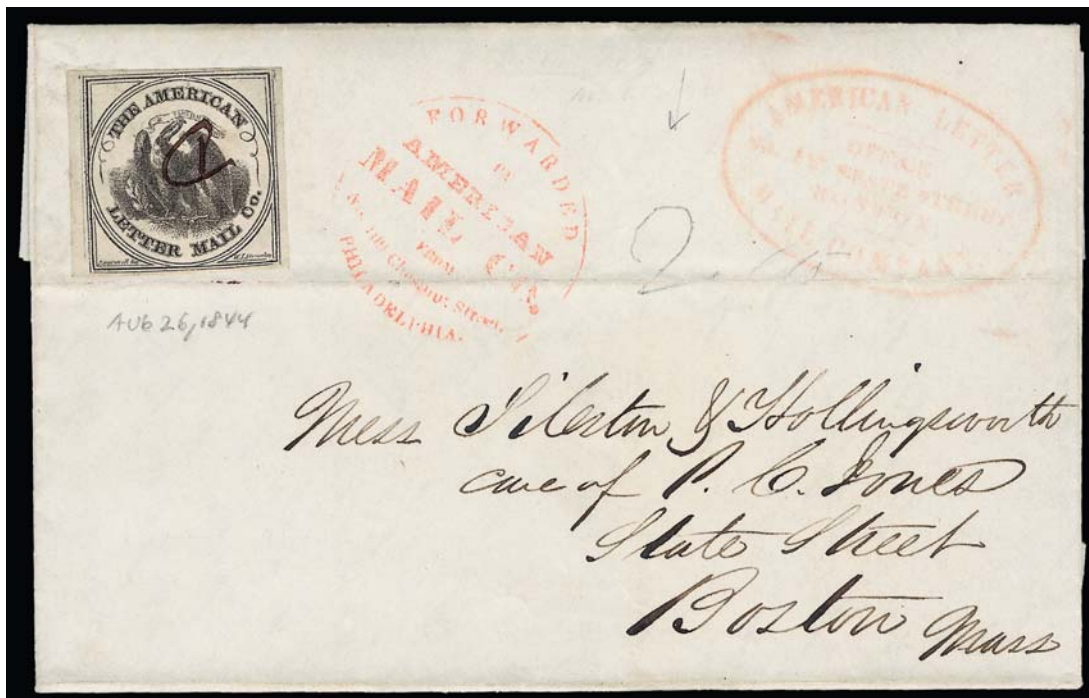 THE AMERICAN
LETTER MAIL Co.
FORWARDED
AMERICAN
MAIL CO.
FROM
No. 109 Chesnut Street,
PHILADELPHIA.
AMERICAN LETTER
OFFICE
STATE STREET
BOSTON
MAIL COMPANY
2
AUG 26, 1844
Mess Tileston & Hollingsworth
care of P. C. Jones
State Street
Boston Mass